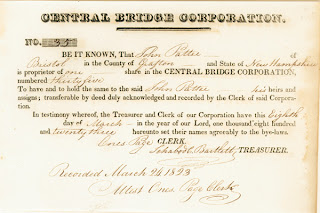 CENTRAL BRIDGE CORPORATION.
NO. 35
BE IT KNOWN, That John Potter of
Bristol in the County of Grafton and State of New Hampshire
is proprietor of one share in the CENTRAL BRIDGE CORPORATION,
numbered thirty five
To have and to hold the same to the said John Potter his heirs and
assigns; transferable by deed duly acknowledged and recorded by the Clerk of said Corpora-
tion.
In testimony whereof, the Treasurer and Clerk of our Corporation have this Eighth
day of March in the year of our Lord, one thousand eight hundred
and twenty three hereunto set their names agreeably to the bye-laws.
Page CLERK.
Ichabod Bartlett TREASURER.
Recorded March 24 1823
Attest Page Clerk